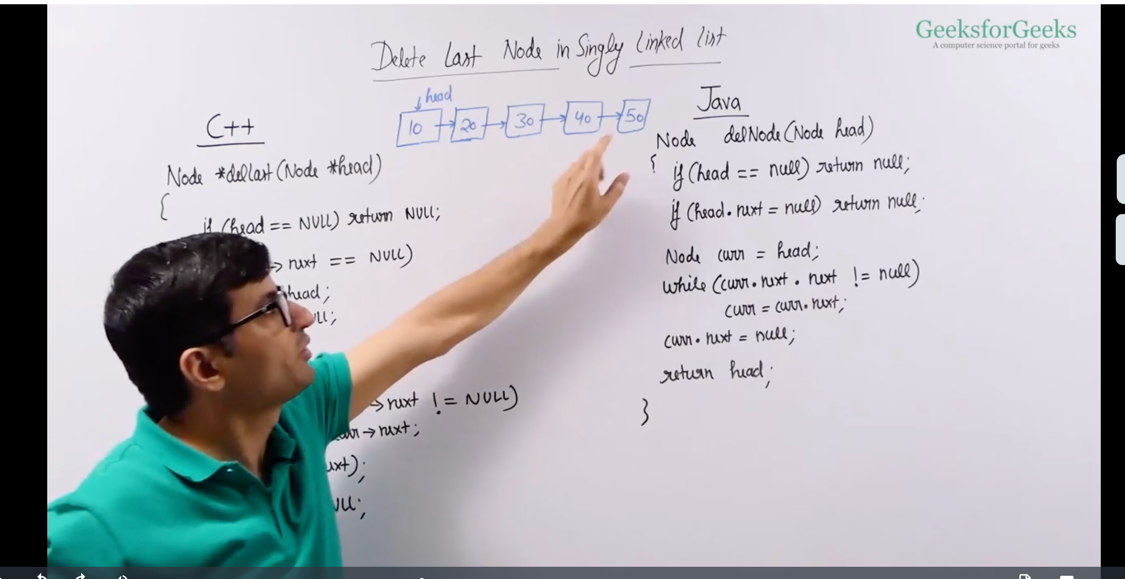 GeeksforGeeks
A computer science portal for geeks
Delete Last Node in Singly Linked List
head
10 20 30 40 50
C++
Node *delLast(Node *head)
{
if (head == NULL) return NULL;
→ next == NULL)
head;
→ next != NULL)
curr → next;
Java
Node delNode(Node head)
{
if (head == null) return null;
if (head.next = null) return null;
Node curr = head;
while (curr.next.next != null)
curr = curr.next;
curr.next = null;
return head;
}